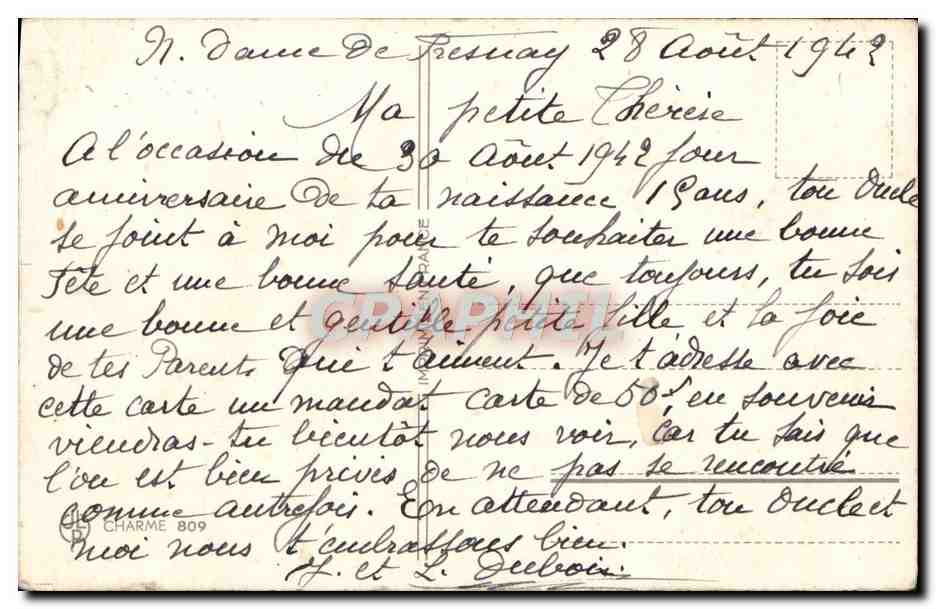 N. Dame de Fresnay 28 Août 1942
Ma petite Thérèse
A l'occasion du 30 Août 1942 jour
anniversaire de ta naissance 15 ans, ton Oncle
se joint à moi pour te souhaiter une bonne
Fête et une bonne santé, que toujours, tu sois
une bonne et gentille petite fille et la joie
de tes Parents qui t'aiment. Je t'adresse avec
cette carte un mandat carte de 50f, en souvenir
viendras-tu bientôt nous voir, car tu sais que
l'on est bien privés de ne pas se rencontré
comme autrefois. En attendant, ton Oncle et
moi nous t'embrassons bien.
J. et L. Dubois
CHARME 809
FRANCE
GRAPHTI